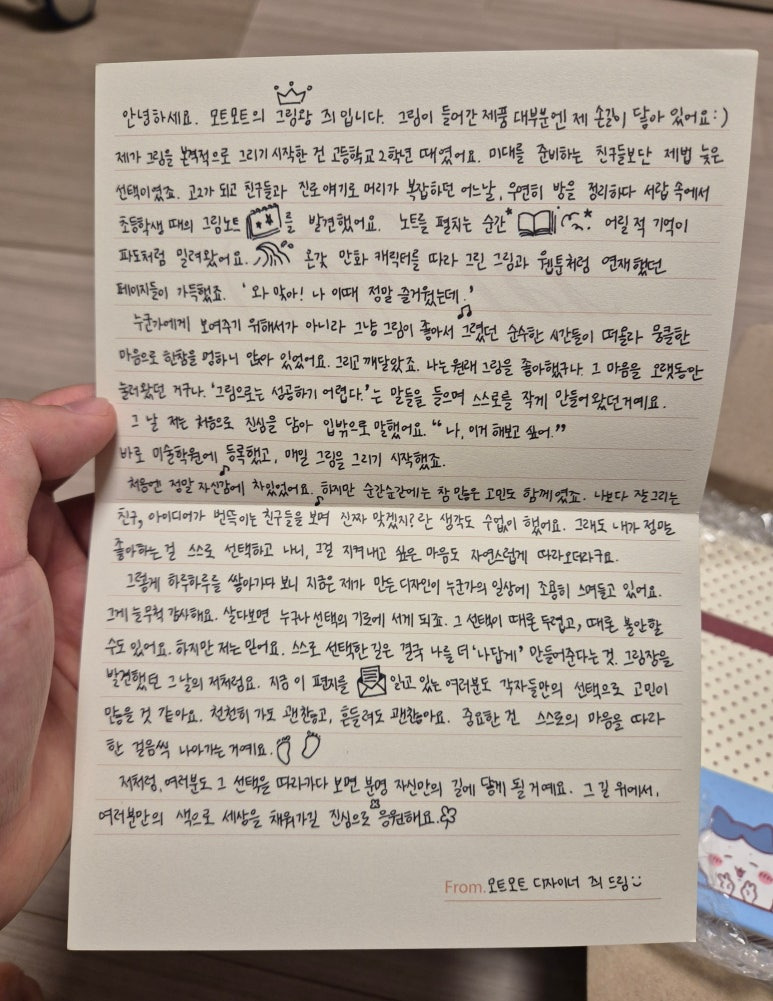 안녕하세요. 모트모트의 그림왕 죄입니다. 그림이 들어간 제품 대부분엔 제 손길이 닿아 있어요:)
제가 그림을 본격적으로 그리기 시작한 건 고등학교 2학년 때였어요. 미대를 준비하는 친구들보단 제법 늦은
선택이였죠. 고2가 되고 친구들과 진로 얘기로 머리가 복잡하던 어느날, 우연히 방을 정리하다 서랍 속에서
초등학생 때의 그림노트를 발견했어요. 노트를 펼치는 순간 어릴 적 기억이
파도처럼 밀려왔어요. 온갖 만화 캐릭터를 따라 그린 그림과 웹툰처럼 연재했던
페이지들이 가득했죠. '와 맞아! 나 이때 정말 즐거웠는데.'
누군가에게 보여주기 위해서가 아니라 그냥 그림이 좋아서 그렸던 순수한 시간들이 떠올라 뭉클한
마음으로 한참을 멍하니 앉아 있었어요. 그리고 깨달았죠. 나는 원래 그림을 좋아했구나. 그 마음을 오랫동안
눌러왔던 거구나. '그림으로는 성공하기 어렵다.'는 말들을 들으며 스스로를 작게 만들어왔던거예요.
그 날 저는 처음으로 진심을 담아 입밖으로 말했어요. "나, 이거 해보고 싶어."
바로 미술학원에 등록했고, 매일 그림을 그리기 시작했죠.
처음엔 정말 자신감에 차있었어요. 하지만 순간순간에는 참 많은 고민도 함께였죠. 나보다 잘그리는
친구, 아이디어가 번뜩이는 친구들을 보며 진짜 맞겠지? 란 생각도 수없이 했어요. 그래도 내가 정말
좋아하는 걸 스스로 선택하고 나니, 그걸 지켜내고 싶은 마음도 자연스럽게 따라오더라구요.
그렇게 하루하루를 쌓아가다 보니 지금은 제가 만든 디자인이 누군가의 일상에 조용히 스며들고 있어요.
그게 늘 무척 감사해요. 살다보면 누구나 선택의 기로에 서게 되죠. 그 선택이 때론 두렵고, 때론 불안할
수도 있어요. 하지만 저는 믿어요. 스스로 선택한 길은 결국 나를 더 '나답게' 만들어준다는 것. 그림장을
발견했던 그날의 저처럼요. 지금 이 편지를 읽고 있는 여러분도 각자들만의 선택으로 고민이
많을 것 같아요. 천천히 가도 괜찮고, 흔들려도 괜찮아요. 중요한 건 스스로의 마음을 따라
한 걸음씩 나아가는 거예요.
저처럼, 여러분도 그 선택을 따라가다 보면 분명 자신만의 길에 닿게 될 거예요. 그 길 위에서,
여러분만의 색으로 세상을 채워가길 진심으로 응원해요.
From. 모트모트 디자이너 죄 드림